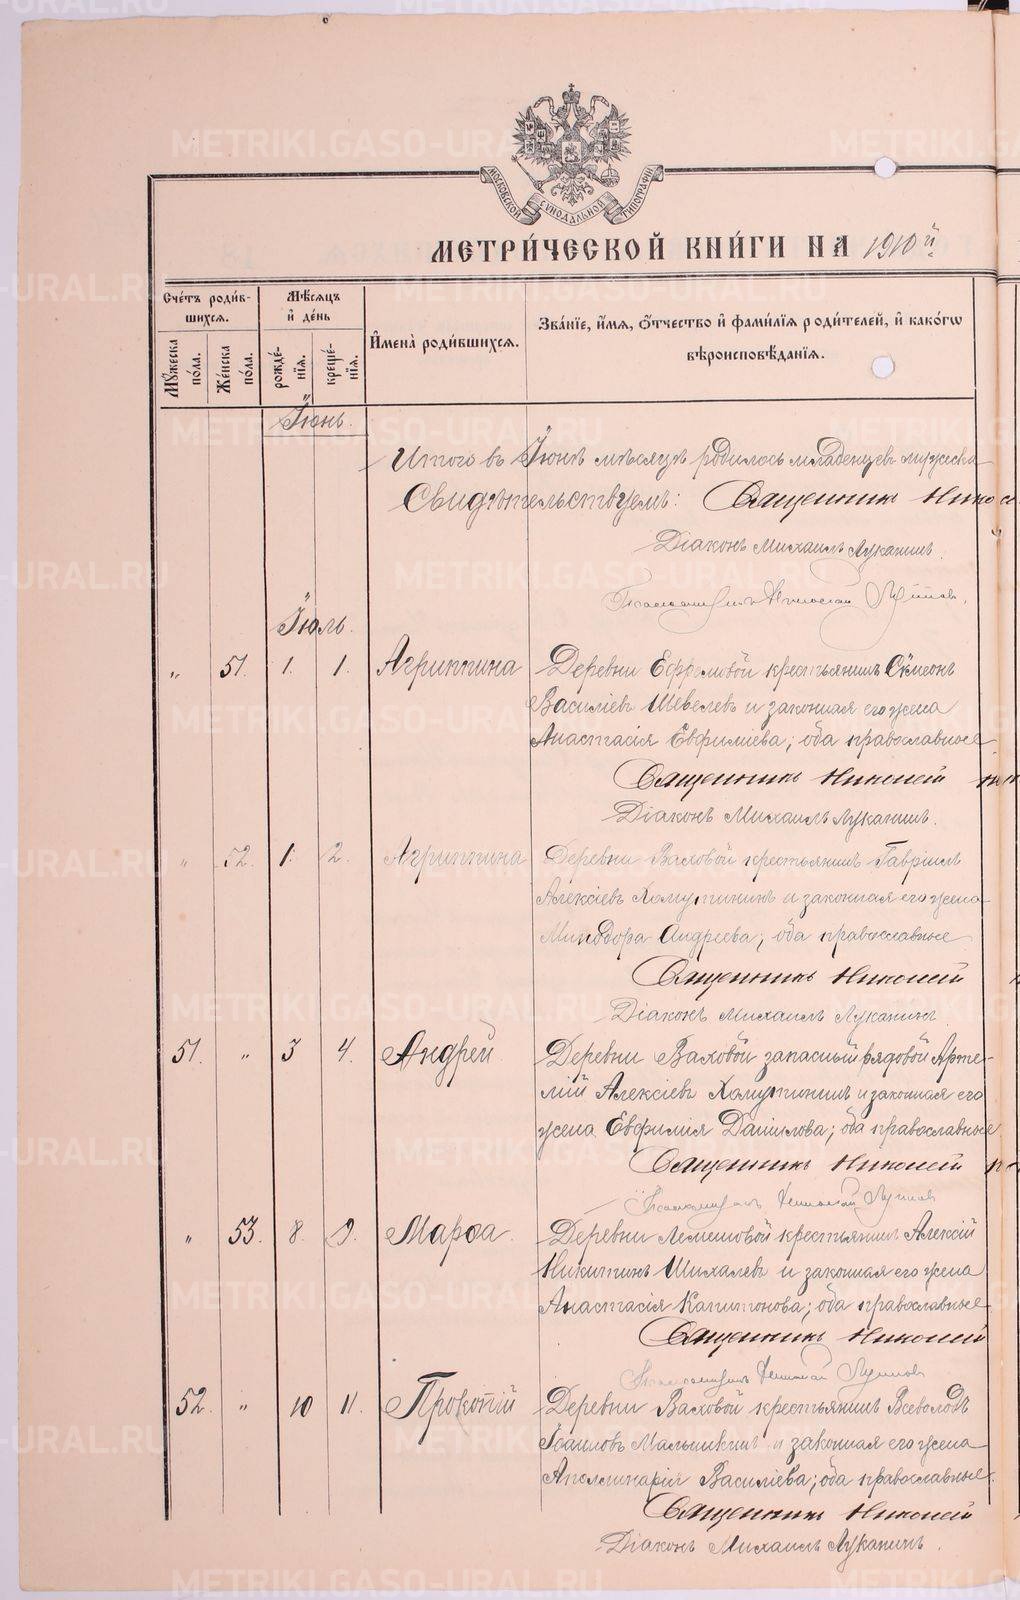 МОСКОВСКОЙ СУНОДАЛЬНОЙ ТИПОГРАФІИ
МЕТРИ́ЧЕСКОЙ КНИ́ГИ НА 1910 й
Сче́тъ роди́в-
шихся.
Мѣ́сяцъ
и҆ де́нь
И҆мена̀ роди́вшихся.
Зва́нїе, и҆́мя, ѻ҆́тчество и҆ фами́лїя роди́телей, и҆ како́гѡ
вѣроисповѣ́данїя.
Мꙋ́жеска по́ла.
Же́нска по́ла.
рожде́-
нїя.
креще́-
нїя.
Іюнь.
Итого въ Іюнѣ мѣсяцѣ родилось младенцевъ мужеска
Свидѣтельствуемъ: Священникъ Нико
Діаконъ Михаилъ Луканинъ.
Іюль.
„ 51. 1. 1. Агриппина Деревни Ефремовой крестьянинъ Симеонъ
Василіевъ Шевелевъ и законная его жена
Анастасія Евфиміева; оба православные
Священникъ Николай
Діаконъ Михаилъ Луканинъ.
„ 52. 1. 2. Агриппина Деревни Ваховой крестьянинъ Гавріилъ
Алексіевъ Хомутининъ и законная его жена
Минодора Андреева; оба православные
Священникъ Николай
Діаконъ Михаилъ Луканинъ
51. „ 3 4. Андрей Деревни Ваховой запасный рядовой Арте-
мій Алексіевъ Хомутининъ и законная его
жена Евфимія Данилова; оба православные
Священникъ Николай
„ 53. 8. 9. Марѳа. Деревни Лемешовой крестьянинъ Алексій
Никитинъ Шихалевъ и законная его жена
Анастасія Капитонова; оба православные
Священникъ Николай
52. „ 10 11. Прокопій Деревни Ваховой крестьянинъ Всеволодъ
Іоанновъ Малышкинъ и законная его жена
Аполлинарія Василіева; оба православные.
Священникъ Николай
Діаконъ Михаилъ Луканинъ.
METRIKI.GASO-URAL.RU